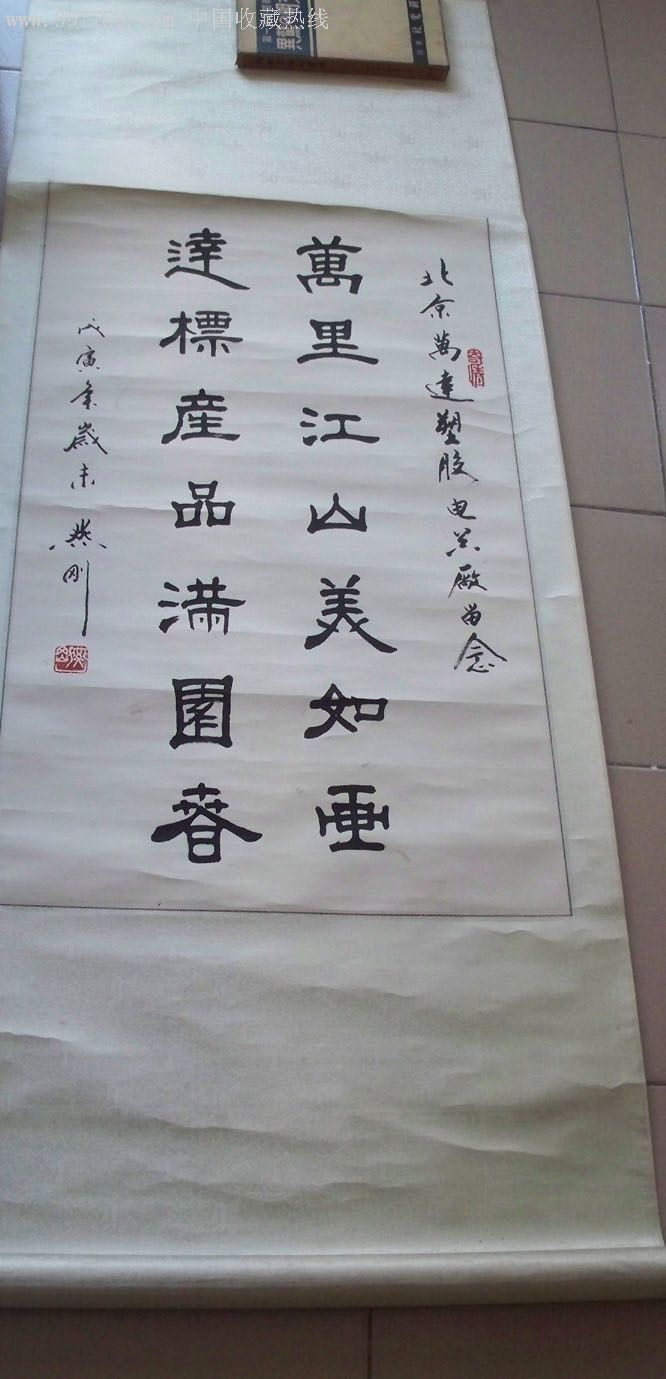 中国收藏热线
北京萬達塑胶电器厰留念
萬里江山美如画
達標産品满園春
戊寅年歲末